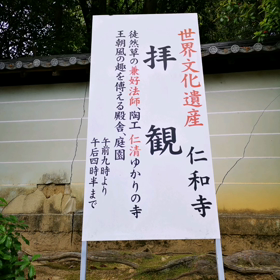 世界文化遺産
仁和寺
拝観
徒然草の兼好法師、陶工 仁清ゆかりの寺
王朝風の趣を傳える殿舎、庭園
午前九時より
午后四時半まで